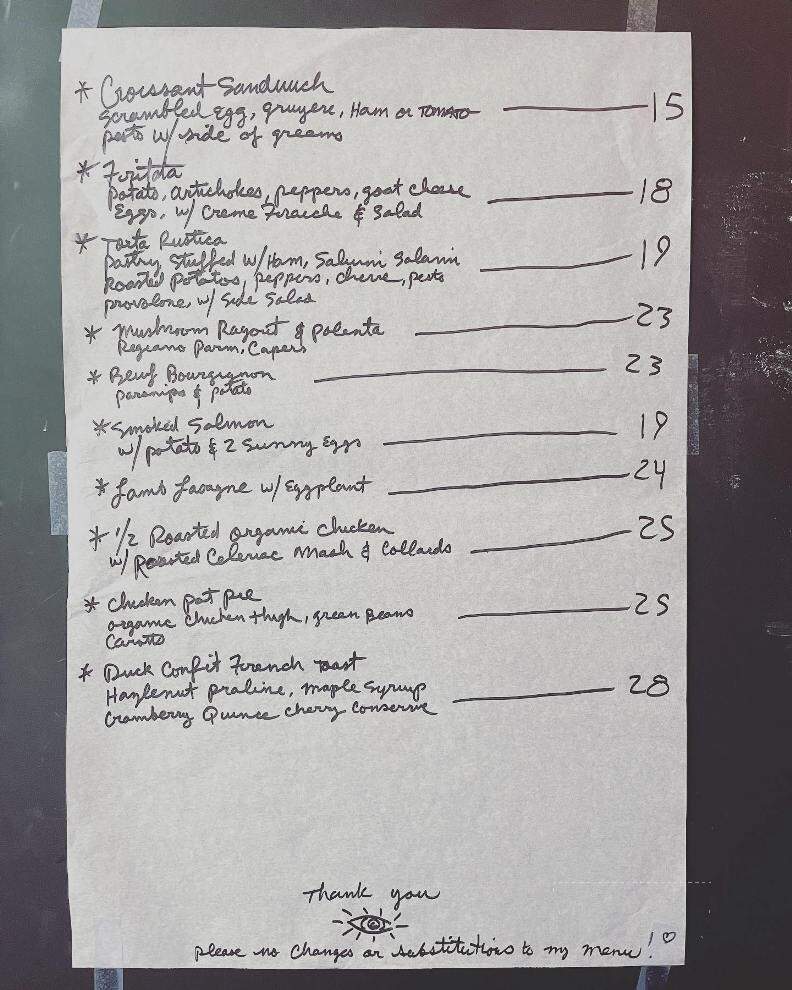 * Croissant Sandwich
Scrambled Egg, gruyere, Ham or TOMATO 15
pesto w/ side of greens
* Fritata
potato, artichokes, peppers, goat cheese 18
Eggs, w/ Creme Fraiche & Salad
* Torta Rustica
pastry Stuffed w/Ham, Salumi Salami 19
Roasted Potatos, peppers, chevre, pesto
provolone, w/ Side Salad
* Mushroom Ragout & polenta 23
Regiano Parm, Capers
* Beuf Bourgignon 23
parsnips & potato
* Smoked Salmon 19
w/ potato & 2 Sunny Eggs
* Lamb Lasagne w/ Eggplant 24
* 1/2 Roasted organic chicken 25
w/ Roasted Celeriac Mash & Collards
* Chicken pot pie
organic chicken thigh, green Beans 25
Carotts
* Duck Confit French toast
Hazlenut praline, maple Syrup 28
Cramberry Quince cherry Conserve
Thank you
please no changes or substitutions to my menu! ♡